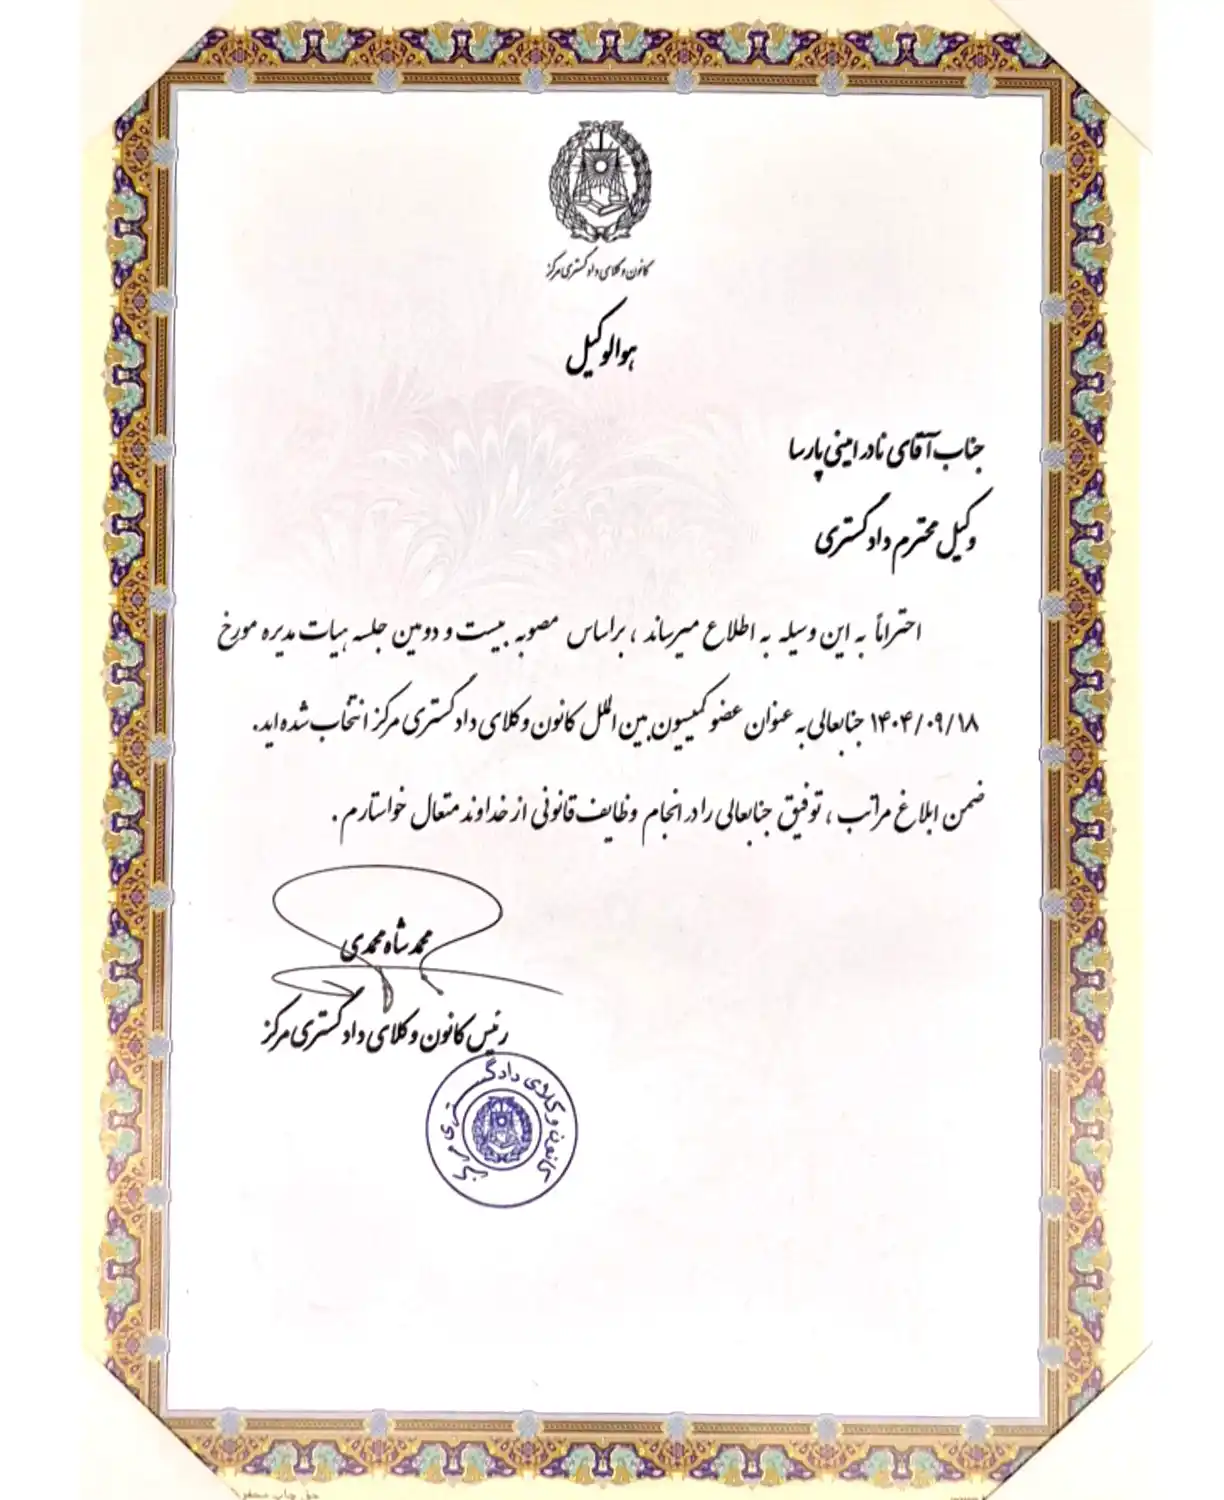 کانون وکلای دادگستری مرکز
هوالوکیل
جناب آقای نادر امینی پارسا
وکیل محترم دادگستری
احتراماً به این وسیله به اطلاع میرساند ، براساس مصوبه بیست و دومین جلسه هیات مدیره مورخ
۱۴۰۴/۰۹/۱۸ جنابعالی به عنوان عضو کمیسیون بین الملل کانون وکلای دادگستری مرکز انتخاب شده اید.
ضمن ابلاغ مراتب ، توفیق جنابعالی را در انجام وظایف قانونی از خداوند متعال خواستارم .
محمد شاه محمدی
رئیس کانون وکلای دادگستری مرکز
کانون وکلای دادگستری مرکز
حق چاپ محفوظ